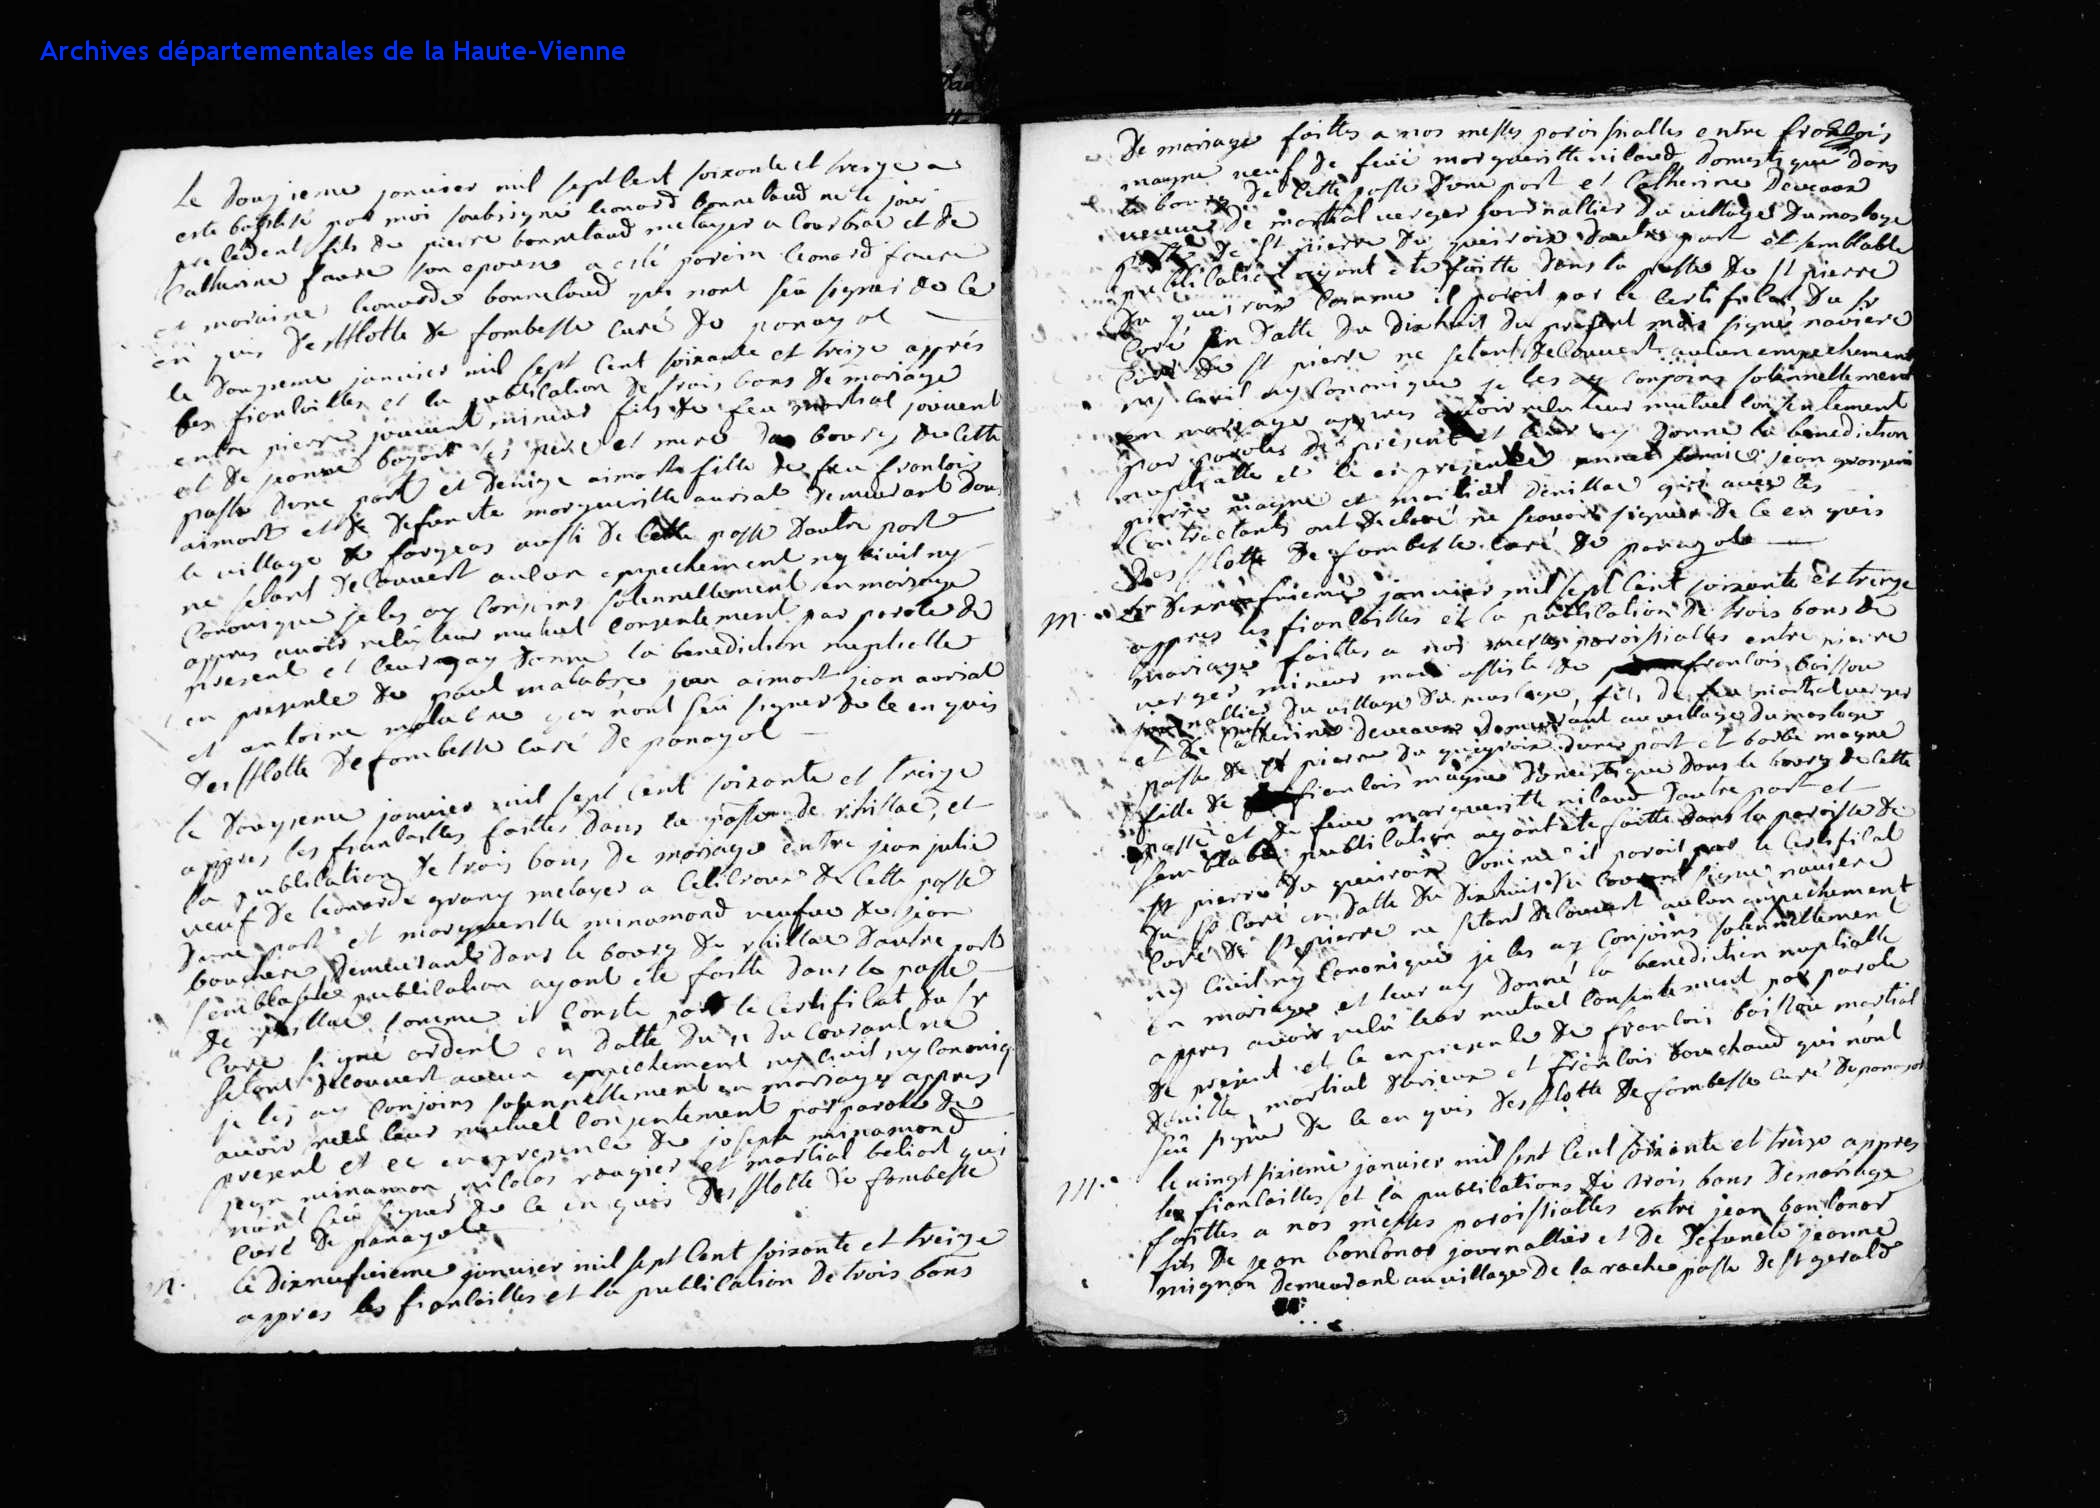 Archives départementales de la Haute-Vienne
Le douzieme janvier mil sept cent soixante et treize a
este baptisé par moi soubsigné leonard bonnetaud né le jour
precedent fils de pierre bonnetaud metayer a Courbiat et de
Catherine faure son epouse a esté parein leonard faure
et moraine leonarde bonnetaud qui nont sçu signer de ce
en quis Desflotte de fombesse curé de panazol
le douzieme janvier mil sept cent soixante et treize apprés
les fiancailles et la publication de trois bans de mariage
entre pierre jouvent mineur fils de feu martial jouvent
et de jeanne ses pere et mere du bourg de cette
passe dune part et denize aimart fille de feu francois
aimart et de defuncte margueritte auriat demeurant dans
le village de fargeas aussi de cette passe dautre part
ne setant decouvert auccun empechement ny civil ny
canonique je les ay conjoins solennellement en mariage
appres avoir recu leur mutuel consentement par parole de
present et leur ay donné la benediction nuptielle
en presence de paul malabre jean aimart jean auriat
et antoine malabre qui nont sçu signer de ce en quis
Desflotte de fombesse curé de panazol
le douzyeme janvier mil sept cent soixante et treize
appres les fiancailles faittes dans la passe de rhillac, et
la publication de trois bans de mariage entre jean julie
veuf de leonarde grany metayer a celicroux de cette passe
dune part et marguerite minamond veufve de jean
bouchere demeurant dans le bourg de rhillac dautre part
semblable publication ayant ete faitte dans la passe
de rhillac comme il conste par le certificat du sr
curé signé ardent en datte du 11 du courant ne
setant decouvert aucun empechement ny civil ny canoniq
je les ay conjoins solennellement en mariage appres
avoir recu leur mutuel consentement par parole de
present et ce en presence de joseph minamond
jean minamon nicolas rougier et martial beliart qui
nont sçu signer de ce en quis Desflotte de fombesse
curé de panazol
m. le dixneufvieme janvier mil sept cent soixante et treize
appres les fiancailles et la publication de trois bans
De mariage faittes a nos messes paroissialles entre francois
mayne veuf de feue marguerite nilaud domestique dans
le bourg de cette passe dune part et Catherine Deveaux
veuve de martial verger journallier du village du maslage
passe de St pierre du queiroix dautre part et semblable
publication ayant ete faitte dans la passe de St pierre
du queiroix comme il paroit par le certificat du sr
curé en datte du dixhuit du present mois signé naviere
curé de St pierre ne setant decouvert aulcun empechement
ny civil ny canonique je les ay conjoins solennellement
en mariage appres avoir recu leur mutuel consentement
par paroles de present et leur ay donné la benediction
nuptialle et ce en presence jean
pierre mayne et martial qui avec les
contractants ont declaré ne scavoir signer de ce en quis
Desflotte de fombesse curé de panazol
m. Le Dixneufvieme janvier mil sept cent soixante et treize
appres les fiancailles et la publication de trois bans de
mariage faittes a nos messes paroissialles entre pierre
verger mineur mais assisté de francois boissou
journallier du village du maslage, fils de feu martial verger
et de Catherine deveaux demeurant au village du maslage
passe de St pierre du queyroix dune part et barbe mayne
fille de francois mayne domestique dans le bourg de cette
passe et de feue marguerite nilaud dautre part et
semblable publication ayant ete faitte dans la paroisse de
St pierre du queiroix comme il paroit par le certificat
du sr curé en datte du dixhuit du courant signé naviere
curé de St pierre ne setant decouvert aulcun empechement
ny civil ny canonique je les ay conjoins solennellement
en mariage et leur ay donné la benediction nuptialle
appres avoir recu leur mutuel consentement par parole
de present et ce en presence de francois boissou martial
martial et francois bouchaud qui nont
sçu signer de ce en quis Desflotte de fombesse curé de panazol
m. le vingt sixieme janvier mil sept cent soixante et treize appres
les fiancailles et la publications de trois bans de mariage
faittes a nos messes paroissialles entre jean boncanor
fils de jean boncanor journallier et de defuncte jeanne
mignon demeurant au village de la rache passe de St gerald